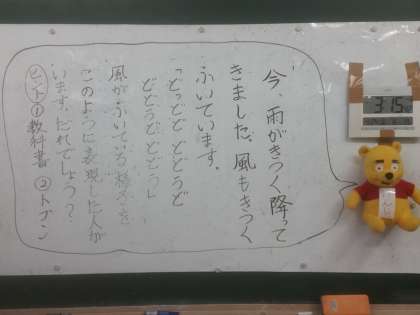 今、雨がきつく降って
きました。風もきつく
ふいています。
「どっどど どどうど
どどうど どどう」
風がふいている様子を
このように表現した人が
います。だれでしょう？
ヒント①教科書 ②
3:15